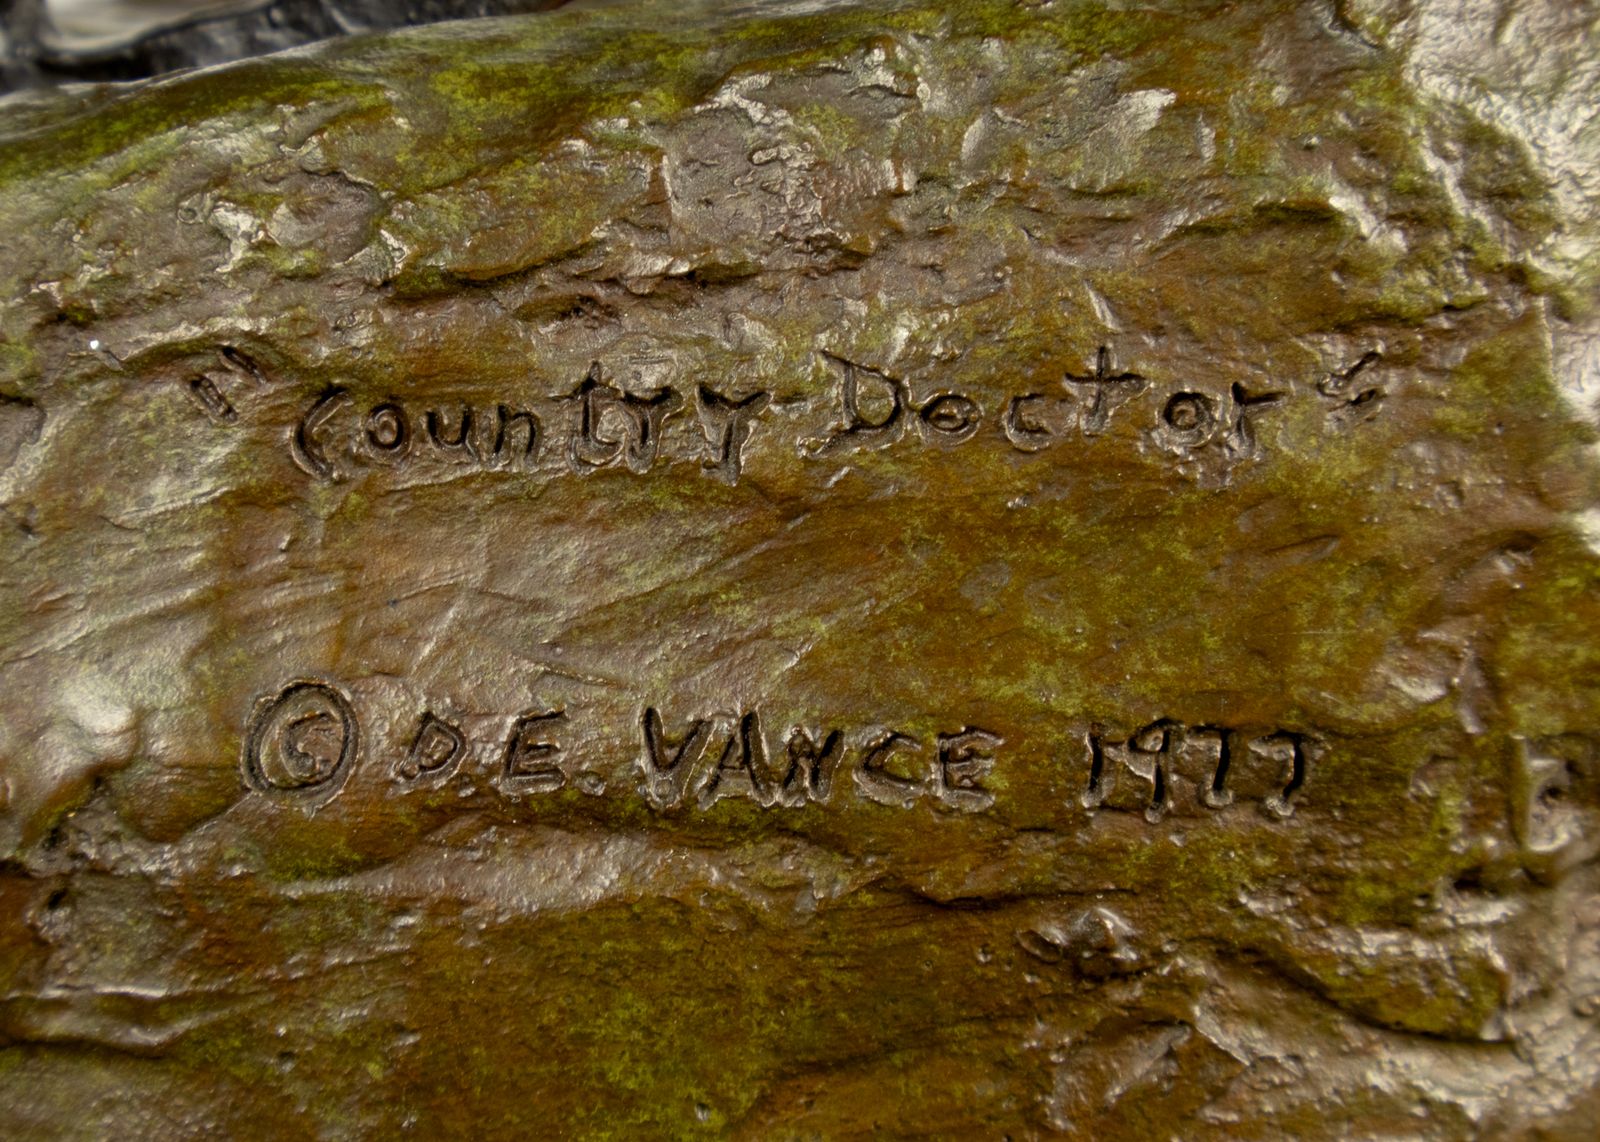 "Country Doctor"
© D.E. VANCE 1977